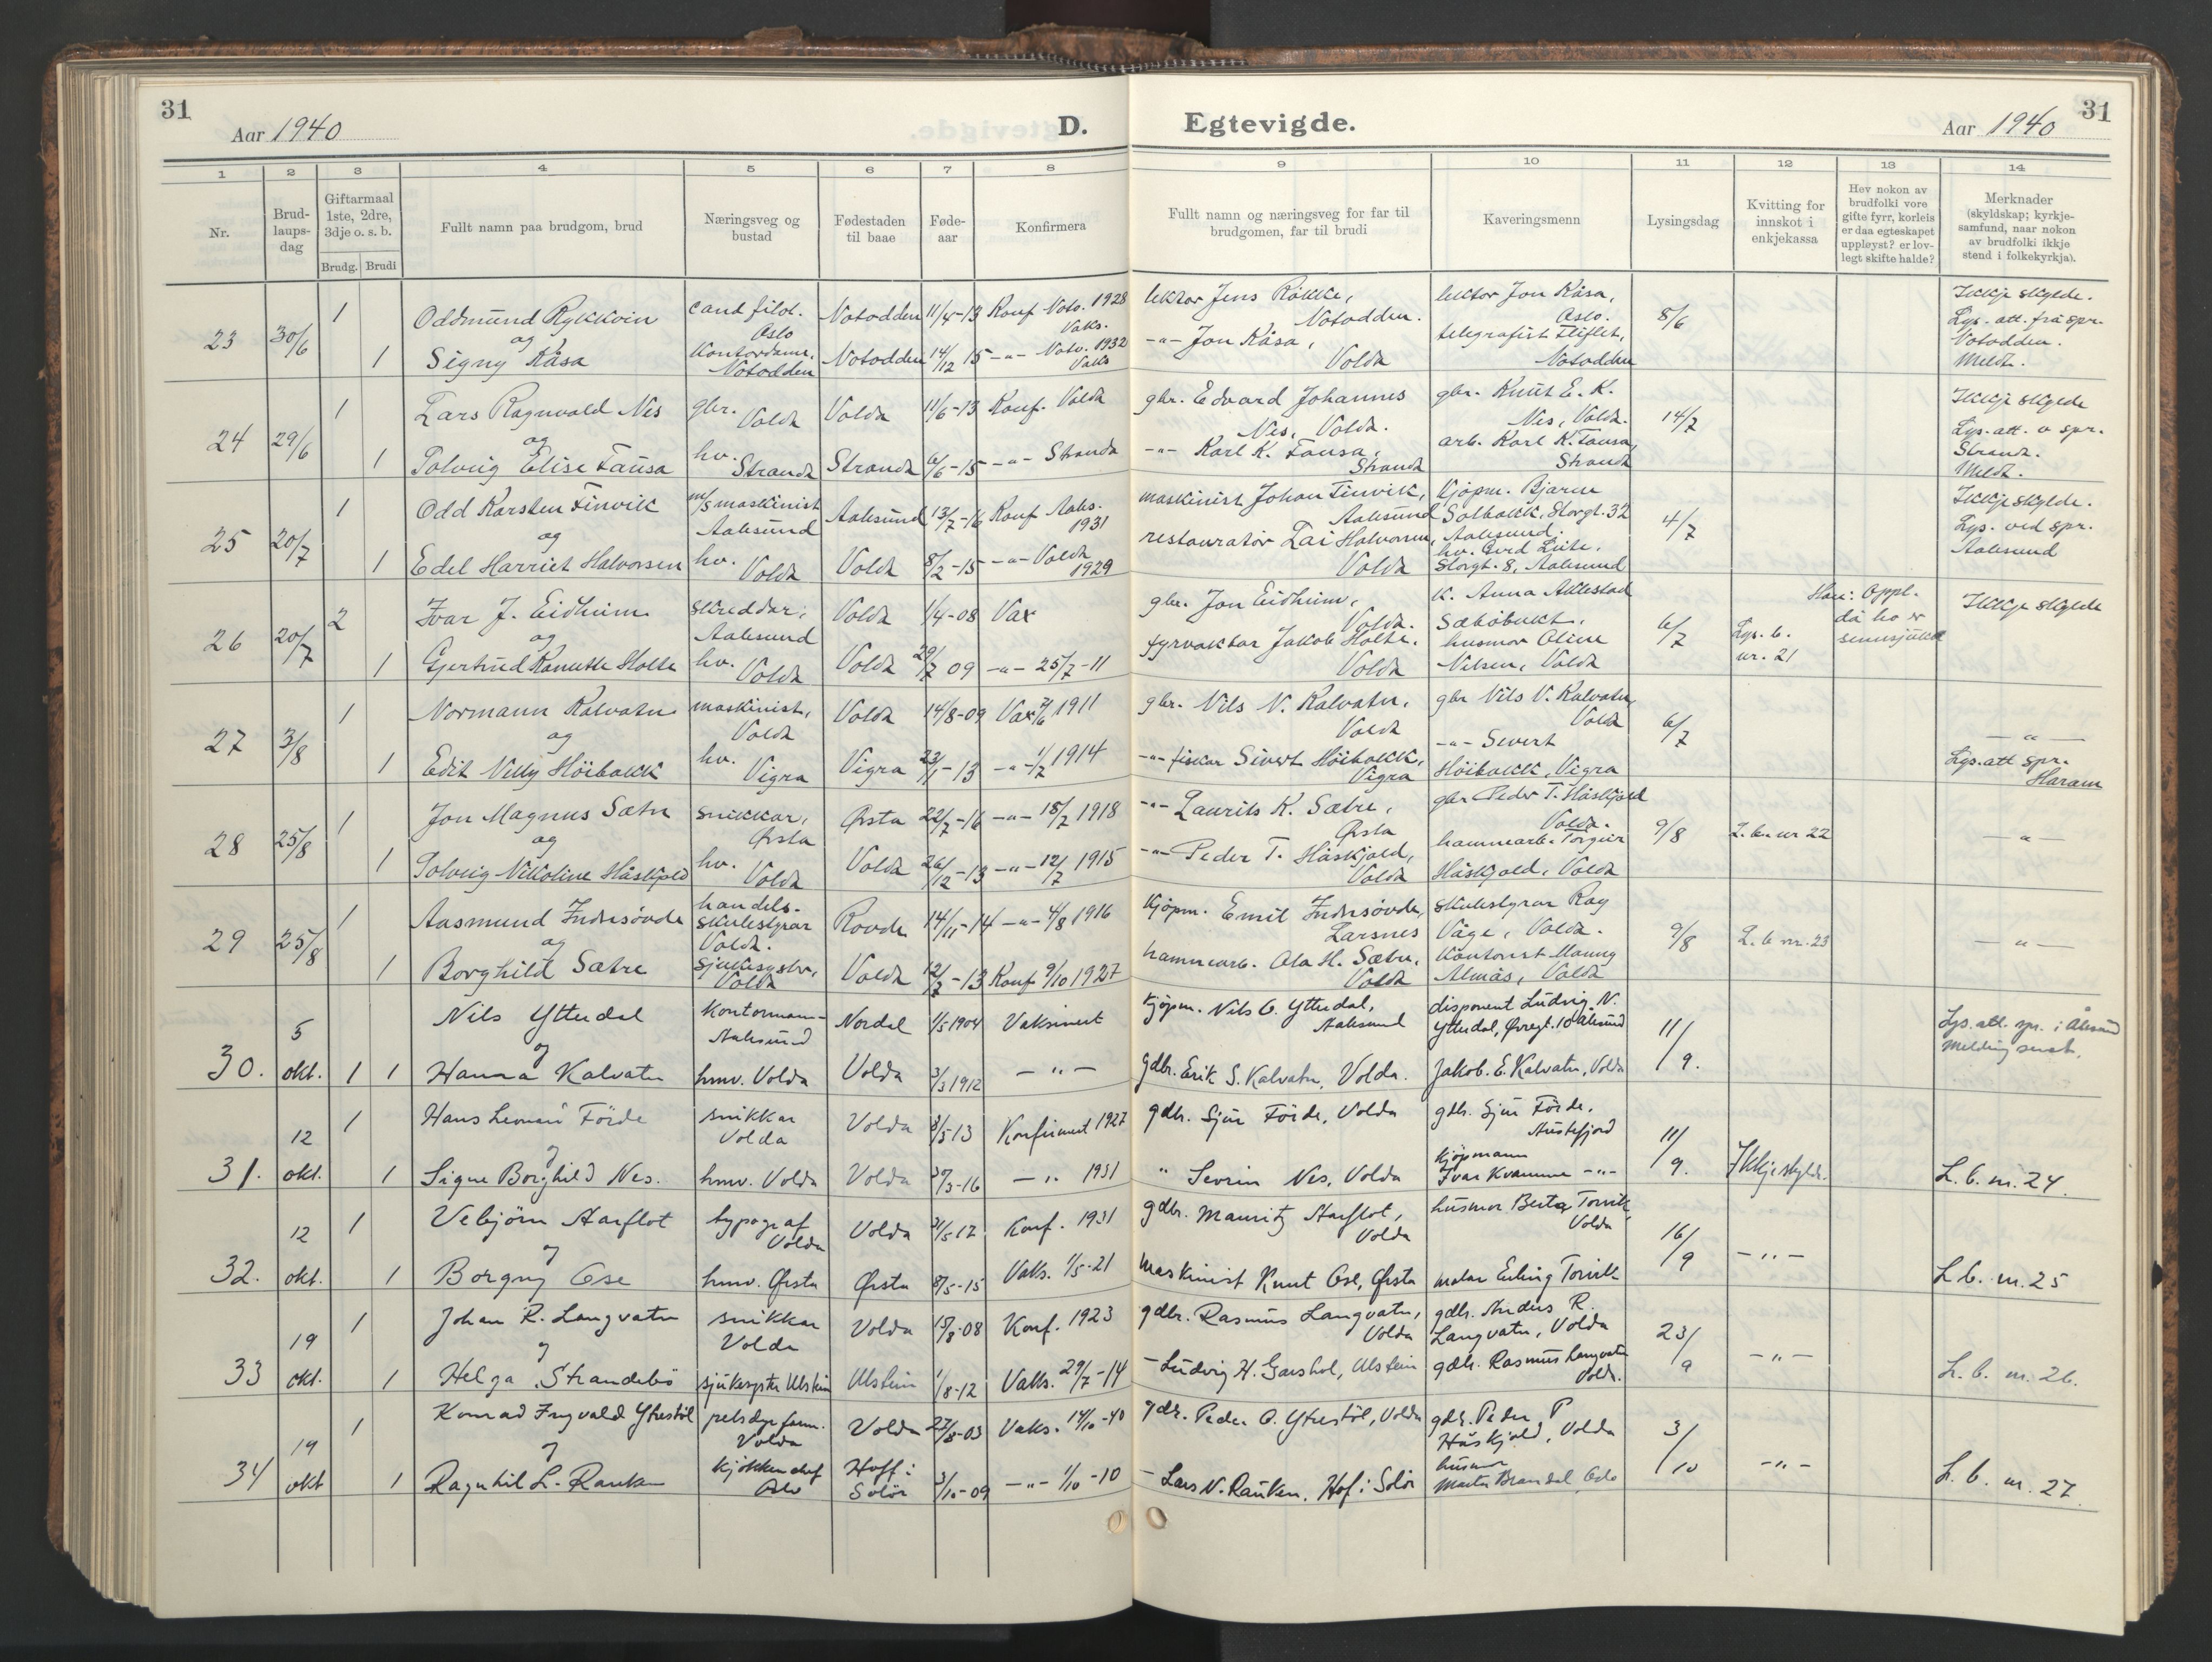 31
Aar 1940
D.
Egtevigde.
Aar 1940
31
1 2 3 4 5 6 7 8 9 10 11 12 13 14
Nr.
Brud-
laups-
dag
Giftarmaal
1ste, 2dre,
3dje o. s. b.
Brudg. Brudi
Fullt namn paa brudgom, brud
Næringsveg og
bustad
Fødestaden
til baae
Føde-
aar
Konfirmera
Fullt namn og næringsveg for far til
brudgomen, far til brudi
Kaveringsmenn
Lysingsdag
Kvitting for
innskot i
enkjekassa
Hev nokon av
brudfolki vore
gifte fyrr, korleis
er daa egteskapet
uppløyst? er lov-
legt skifte halde?
Merknader
(skyldskap; kyrkje-
samfund, naar nokon
av brudfolki ikkje
stend i folkekyrkja).
23
30/6
1
Oddmund Rykkvin
og
1
Signy Kåsa
cand filol.
Oslo
Kontordame,
Notodden
Notodden
Notodden
11/4-13
14/12 15
Konf Noto. 1928
Vaks.
-"- Noto. 1932
Vaks
lektor Jens Rökke,
Notodden.
-"- Jon Kåsa,
Volda
lektor Jon Kåsa,
Oslo.
telegrafist Fliflet,
Notodden
8/6
Ikkje skylde.
Lys. att. frå spr.
Notodden.
Meldt.
24
29/6
1
Lars Ragnvald Nes
og
1
Solveig Elise Tausa
gbr.
Volda
hv.
Stranda
Volda
Stranda
11/6-13
6/6-15
Konf. Volda
-"- Stranda
gbr. Edvard Johannes
Nes, Volda.
-"- Karl K. Tausa,
Stranda
gbr. Knut E. K.
Nes, Volda.
arb. Karl K. Tausa,
Stranda
14/7
Ikkje skylde
Lys. att. v spr.
Stranda.
Meldt.
25
20/7
1
Odd Karsten Finvik
og
1
Edel Harriet Halvorsen
m/s maskinist
Aalesund
hv.
Volda
Aalesund
Volda
13/7-16
8/2-15
Konf Aales.
1931
-"- Volda
1929
maskinist Johan Finvik,
Aalesund
restauratør Lai Halvorsen,
Volda
Kjöpm. Bjarne
Solbakk, Storgt. 32
Aalesund,
hv. Gerd Liite,
Storgt. 8, Aalesund
4/7
Ikkje skylde.
Lys. ved spr.
Aalesund
26
20/7
2
Ivar J. Eidheim
og
1
Gjertrud Kanutte Holte
Skreddar,
Aalesund
hv.
Volda
Volda
Volda
1/4-08
29/7 09
Vax
-"- 25/7-11
gbr. Jon Eidheim,
Volda.
fyrvaktar Jakob Holte.
Volda
K. Anna Aklestad
Sæböbukt.
husmor Oline
Nilsen, Volda
6/7
Lys. b.
nr. 21
Han: Oppl.
då ho er
sinnssjuk
Ikkje skylde
27
3/8
1
Normann Kalvatn
og
1
Edit Nelly Höibakk
maskinist,
Volda
hv.
Vigra
Volda
Vigra
14/8-09
23/1-13
Vax 7/6 1911
-"- 1/7 1914
gbr. Nils N. Kalvatn,
Volda
-"- fiskar Sivert Höibakk,
Vigra
gbr Nils V. Kalvatn,
Volda
-"- Sivert
Höibakk, Vigra
6/7
-"-
Lys. att spr.
Haram
28
25/8
1
Jon Magnus Sætre
og
1
Solveig Nikoline Håskjold
Snikkar,
Ørsta
hv.
Volda
Ørsta
Volda
22/7-16
26/12-13
-"- 18/7 1918
-"- 12/7 1915
-"- Laurits K. Sætre,
Ørsta
-"- Peder T. Håskjold,
Volda
gbr Peder T. Håskjold
Volda.
hamnearb. Torgeir
Håskjold, Volda
9/8
L. b. nr 22
-"-
29
25/8
1
Aasmund Indresövde
og
1
Borghild Sætre
handels-
skulestyrar
Volda.
Sjukesyster,
Volda
Rovde
Volda
14/11-14
12/7-13
-"- 4/8 1916
Konf 9/10 1927
Kjöpm. Emil Indresövde,
Larsnes
hamnearb. Ola H. Sætre,
Volda
Skulestyrar Rag
Våge, Volda.
Kontorist Magny
Almås, Volda
9/8
L. b nr. 23
-"-
30.
5
okt.
1 1
Nils Ytterdal
og
Hanna Kalvatn
Kontormann
Aalesund
hmv. Volda
Nordal
Volda
1/5 1904
3/3 1912
Vaksinert
-"-
kjöpm. Nils O. Ytterdal,
Aalesund
gdbr. Erik S. Kalvatn, Volda.
disponent Ludvig N.
Ytterdal, Øvregt. 10 Ålesund
Jakob. E. Kalvatn, Volda
11/9.
Lys. att. spr. i Ålesund
Melding sendt.
31.
12
okt.
1
Hans Lemain Förde
og
1
Signe Borghild Nes.
snikkar
Volda
hmv. Volda
Volda
Volda
8/5 13
30/3-16
Konfirmert 1927
-"- 1931
gdbr. Sjur Förde, Volda
" Sevrin Nes, Volda
gdbr. Sjur Förde.
Austefjord
kjöpmann
Ivar Kvamme -"-
11/9.
Ikkje skylde.
L. b. nr. 24.
32.
12
okt.
1
Vebjörn Aarflot
og
1
Borgny Ose
typograf
Volda
hmv. Ørsta
Volda
Ørsta
31/5-17
8/5-15
Konf. 1931
Vaks. 1/5-21
gdbr. Mauritz Aarflot,
Volda
Maskinist Knut Ose, Ørsta
husmor Berta Torvik,
Volda
malar Erling Torvik
16/9
-"-
L b. nr. 25
33
19
okt.
1
Johan R. Langvatn
og
1
Helga Strandabö
snikkar
Volda
sjukesyster Ulstein
Volda
Ulstein
15/8-08
1/8-12
Konf. 1923
Vaks. 29/7-14
gdbr. Rasmus Langvatn,
Volda
- Ludvig H. Garshol, Ulstein
gdbr. Anders R.
Langvatn, Volda
gdbr. Rasmus Langvatn
Volda.
23/9
-"-
L. b. nr. 26.
34
19
okt
1
Konrad Ingvald Ytrestöl
og
1
Ragnhil L. Rauken
pelsdyrfarm.
Volda
kjökkenchef
Oslo
Volda
Hoff i
Solör
27/8-03
3/10-09
Vaks. 14/10-40
-"- 1/10-10
gdbr. Peder O. Ytrestöl, Volda
- Lars N. Rauken, Hof i Solör
gdbr. Peder P
Håskjold, Volda
husmor
Marta Brandal Oslo
3/10
-"-
L. b. nr. 27.